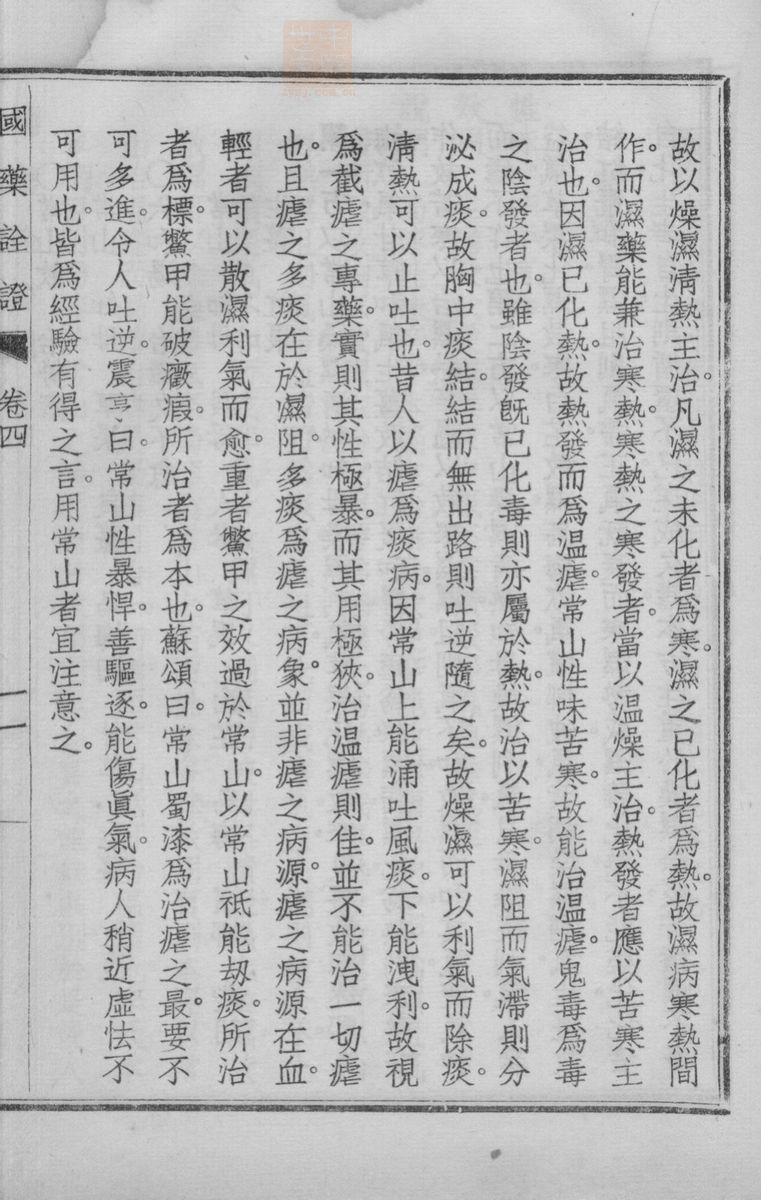 故以燥濕淸熱主治。凡濕之未化者爲寒。濕之已化者爲熱。故濕病寒熱間
作。而濕藥能兼治寒熱。寒熱之寒發者。當以温燥主治。熱發者應以苦寒主
治也。因濕已化熱。故熱發而爲温瘧。常山性味苦寒。故能治温瘧。鬼毒爲毒
之陰發者也。雖陰發旣已化毒則亦屬於熱。故治以苦寒。濕阻而氣滯則分
泌成痰。故胸中痰結。結而無出路則吐逆隨之矣。故燥濕可以利氣而除痰。
淸熱可以止吐也。昔人以瘧爲痰病。因常山上能涌吐風痰。下能洩利。故視
爲截瘧之專藥。實則其性極暴。而其用極狹。治温瘧則佳。並不能治一切瘧
也。且瘧之多痰在於濕阻。多痰爲瘧之病象。並非瘧之病源。瘧之病源在血。
輕者可以散濕利氣而愈。重者鱉甲之效過於常山。以常山祇能刧痰。所治
者爲標。鱉甲能破癥瘕。所治者爲本也。蘇頌曰。常山蜀漆爲治瘧之最要。不
可多進。令人吐逆。震亨曰。常山性暴悍。善驅逐。能傷眞氣。病人稍近虛怯。不
可用也。皆爲經驗有得之言。用常山者宜注意之。
國藥詮證 卷四 一一